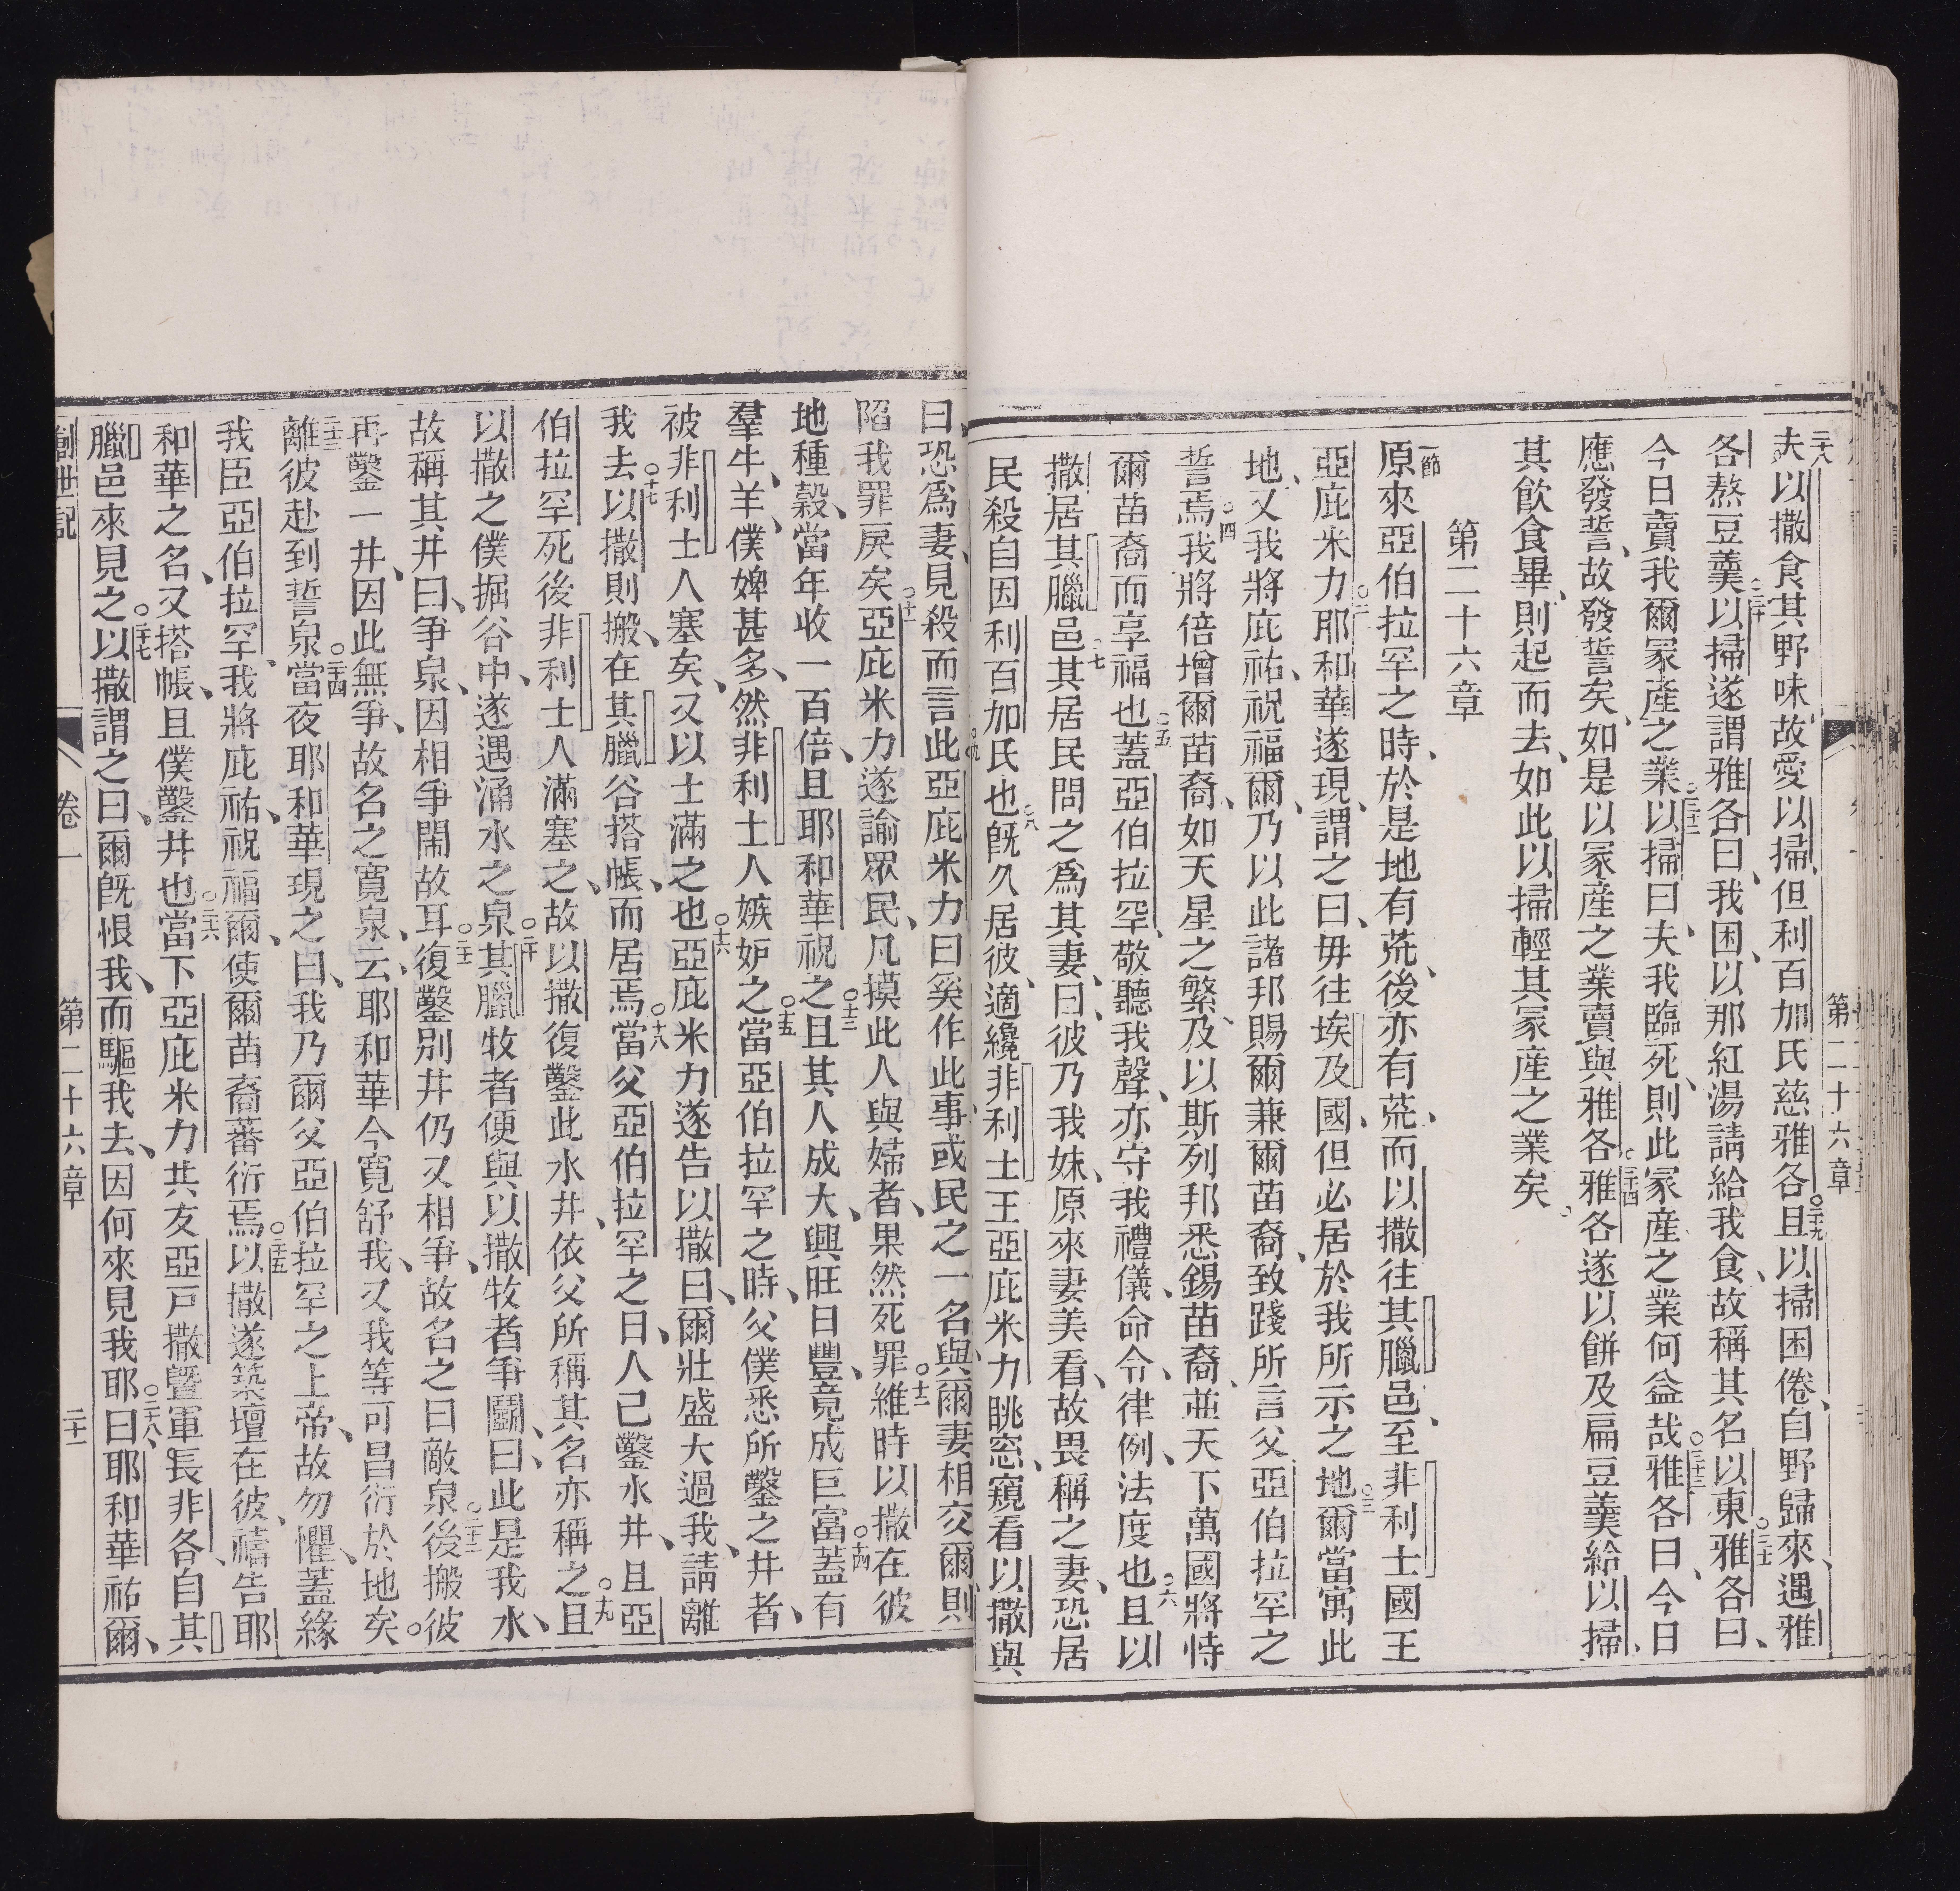 第二十六章
夫以撒食其野味、故愛以掃、但利百加氏慈雅各、○二十九且以掃困倦、自野歸來、遇雅
各熬豆羹、○三十以掃遂謂雅各曰、我困、以那紅湯請給我食、故稱其名以東、○三十一雅各曰、
今日賣我爾冢產之業、○三十二以掃曰、夫我臨死、則此冢產之業何益哉、○三十三雅各曰、今日
應發誓、故發誓矣、如是以冢產之業賣與雅各、○三十四雅各遂以餅及扁豆羹給以掃、
其飲食畢、則起而去、如此以掃輕其冢產之業矣、
第二十六章
一節原來亞伯拉罕之時、於是地有荒、後亦有荒、而以撒往其臘邑、至非利士國王
亞庇米力、○二耶和華遂現、謂之曰、毋往埃及國、但必居於我所示之地、○三爾當寓此
地、又我將庇祐、祝福爾、乃以此諸邦賜爾兼爾苗裔、致踐所言父亞伯拉罕之
誓焉、○四我將倍增爾苗裔、如天星之繁、及以斯列邦悉錫苗裔、並天下萬國將恃
爾苗裔而享福也、○五蓋亞伯拉罕敬聽我聲、亦守我禮儀、命令、律例、法度也、○六且以
撒居其臘邑、○七其居民問之爲其妻、曰、彼乃我妹、原來妻美看、故畏稱之妻、恐居
民殺自因利百加氏也、○八旣久居彼、適纔非利士王亞庇米力眺窓、窺看以撒與
○九
曰、恐爲妻、見殺而言此、亞庇米力曰、奚作此事、或民之一名、與爾妻相交、爾則
陷我罪戾矣、○十一亞庇米力遂諭眾民、凡摸此人與婦者、果然死罪、○十二維時以撒在彼
地種穀、當年收一百倍、且耶和華祝之、○十三且其人成大、興旺日豐、竟成巨富、○十四蓋有
羣牛、羊、僕婢甚多、然非利士人嫉妒之、○十五當亞伯拉罕之時、父僕悉所鑿之井者、
被非利士人塞矣、又以士滿之也、○十六亞庇米力遂告以撒曰、爾壯盛大過我、請離
我去、○十七以撒則搬、在其臘谷搭帳、而居焉、○十八當父亞伯拉罕之日、人己鑿水井、且亞
伯拉罕死後、非利士人滿塞之、故以撒復鑿此水井、依父所稱其名亦稱之、○十九且
以撒之僕掘谷中、遂遇涌水之泉、○二十其臘牧者便與以撒牧者爭鬪、曰、此是我水、
故稱其井曰、爭泉、因相爭鬧故耳、○二十一復鑿別井、仍又相爭、故名之曰敵泉、○二十二後搬彼
再鑿一井、因此無爭、故名之寬泉、云、耶和華今寬舒我、又我等可昌衍於地矣。
二十三離彼赴到誓泉、○二十四當夜耶和華現之曰、我乃爾父亞伯拉罕之上帝、故勿懼、蓋緣
我臣亞伯拉罕、我將庇祐、祝福爾、使爾苗裔蕃衍焉、○二十五以撒遂築壇在彼、禱告耶
和華之名、又搭帳、且僕鑿井也、○二十六當下亞庇米力共友亞戸撒曁軍長非各、自其
臘邑來見之、○二十七以撒謂之曰、爾旣恨我、而驅我去、因何來見我耶、○二十八曰、耶和華祐爾、
創世記 卷一 第二十六章 二十一